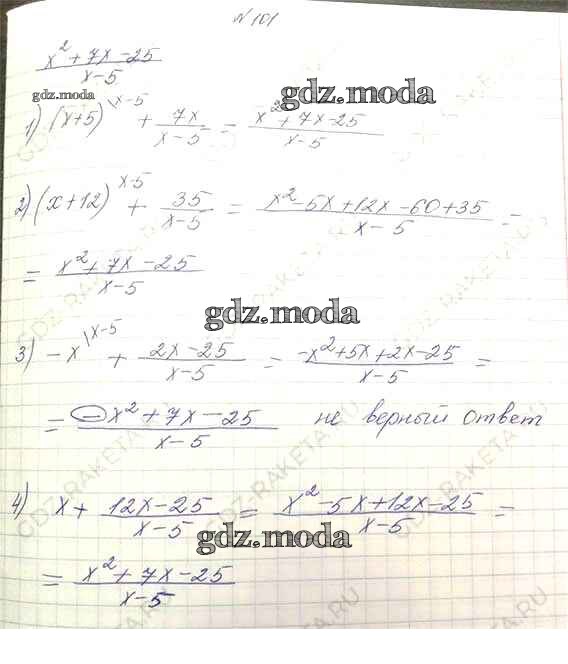 № 101
x² + 7x - 25 / x - 5
gdz.moda
gdz.moda
1) (x+5) \x-5 + 7x / x - 5 = x² + 7x - 25 / x - 5
2) (x+12) x-5 + 35 / x - 5 = x² - 5x + 12x - 60 + 35 / x - 5 =
= x² + 7x - 25 / x - 5
gdz.moda
3) -x \x-5 + 2x - 25 / x - 5 = -x² + 5x + 2x - 25 / x - 5 =
= -x² + 7x - 25 / x - 5 не верный ответ
4) x + 12x - 25 / x - 5 = x² - 5x + 12x - 25 / x - 5 =
gdz.moda
= x² + 7x - 25 / x - 5